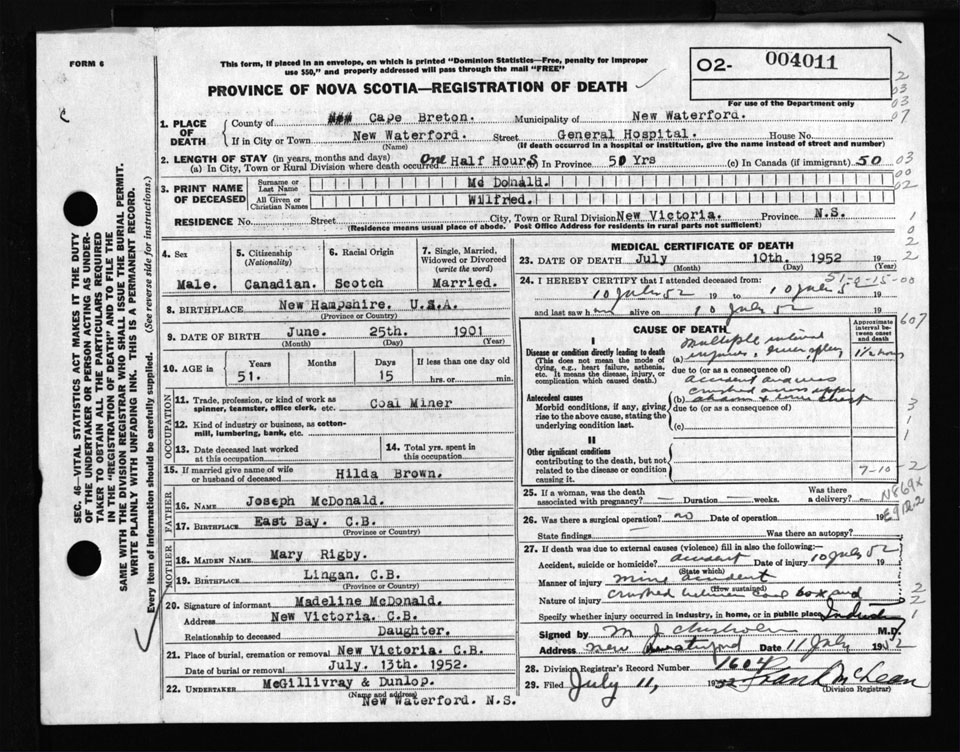 FORM 6
This form, if placed in an envelope, on which is printed "Dominion Statistics—Free, penalty for improper
use $50," and properly addressed will pass through the mail "FREE"
02- 004011
For use of the Department only
PROVINCE OF NOVA SCOTIA—REGISTRATION OF DEATH
1. PLACE OF DEATH
County of Cape Breton. Municipality of New Waterford.
If in City or Town New Waterford. Street General Hospital. House No.
(Name) (If death occurred in a hospital or institution, give the name instead of street and number)
2. LENGTH OF STAY (in years, months and days)
(a) In City, Town or Rural Division where death occurred One Half Hours (b) In Province 50 Yrs (c) In Canada (if immigrant) 50
3. PRINT NAME OF DECEASED
Surname or Last Name Mc Donald.
All Given or Christian Names Wilfred.
RESIDENCE No. Street City, Town or Rural Division New Victoria. Province N.S.
(Residence means usual place of abode. Post Office Address for residents in rural parts not sufficient)
4. Sex Male.
5. Citizenship (Nationality) Canadian.
6. Racial Origin Scotch
7. Single, Married, Widowed or Divorced (write the word) Married.
8. BIRTHPLACE New Hampshire. U.S.A
(Province or Country)
9. DATE OF BIRTH June. 25th. 1901
(Month) (Day) (Year)
10. AGE in Years 51. Months Days 15 If less than one day old hrs. or min.
OCCUPATION
11. Trade, profession, or kind of work as spinner, teamster, office clerk, etc. Coal Miner
12. Kind of industry or business, as cotton-mill, lumbering, bank, etc.
13. Date deceased last worked at this occupation
14. Total yrs. spent in this occupation
15. If married give name of wife or husband of deceased Hilda Brown.
FATHER
16. Name Joseph McDonald.
17. Birthplace East Bay. C.B.
MOTHER
18. MAIDEN NAME Mary Rigby.
19. Birthplace Lingan. C.B.
(Province or Country)
20. Signature of informant Madeline McDonald.
Address New Victoria. C.B.
Relationship to deceased Daughter.
21. Place of burial, cremation or removal New Victoria. C.B.
Date of burial or removal July. 13th. 1952.
22. UNDERTAKER McGillivray & Dunlop.
(Name and address)
New Waterford. N.S.
MEDICAL CERTIFICATE OF DEATH
23. DATE OF DEATH July 10th. 1952
(Month) (Day) (Year)
24. I HEREBY CERTIFY that I attended deceased from:
10 July 52 19 to 10 July 5 19
and last saw h alive on 10 July 52 19
CAUSE OF DEATH
Approximate interval between onset and death
I
Disease or condition directly leading to death
(This does not mean the mode of dying, e.g., heart failure, asthenia, etc. It means the disease, injury, or complication which caused death.)
(a) Multiple internal injuries 1½ hours
due to (or as a consequence of)
Antecedent causes
Morbid conditions, if any, giving rise to the above cause, stating the underlying condition last.
(b) accident
crushed
due to (or as a consequence of)
(c)
II
Other significant conditions
contributing to the death, but not related to the disease or condition causing it.
7-10-2
25. If a woman, was the death associated with pregnancy? Duration weeks. Was there a delivery?
26. Was there a surgical operation? no Date of operation 19
State findings Was there an autopsy?
27. If death was due to external causes (violence) fill in also the following:—
Accident, suicide or homicide? accident Date of injury 10 July 52 19
(State which)
Manner of injury mine accident
(How sustained)
Nature of injury crushed between coal box and
Specify whether injury occurred in industry, in home, or in public place Industry
Signed by M. J. Chisholm M.D.
Address New Waterford Date 11 July 1952
28. Division Registrar's Record Number 1604
29. Filed July 11, 1952 Frank McLean
(Division Registrar)
SEC. 46—VITAL STATISTICS ACT MAKES IT THE DUTY
OF THE UNDERTAKER OR PERSON ACTING AS UNDER-
TAKER TO OBTAIN ALL THE PARTICULARS REQUIRED
IN THE "REGISTRATION OF DEATH" AND TO FILE THE
SAME WITH THE DIVISION REGISTRAR WHO SHALL ISSUE THE BURIAL PERMIT.
WRITE PLAINLY WITH UNFADING INK. THIS IS A PERMANENT RECORD.
Every item of Information should be carefully supplied. (See reverse side for instructions.)